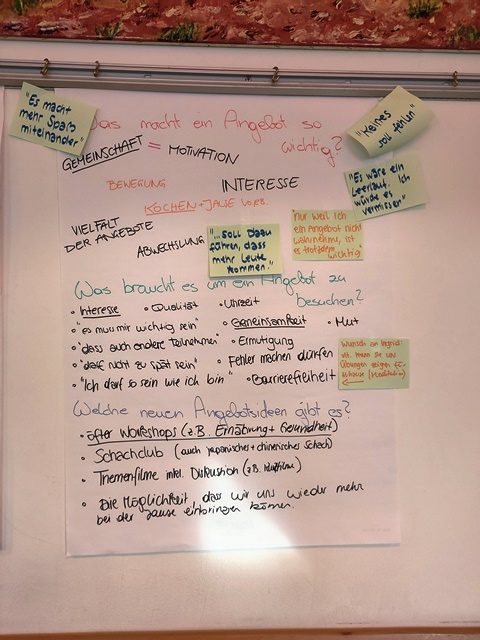 "Es macht
mehr Spaß
miteinander"
Was macht ein Angebot so
wichtig?
"Keines
soll fehlen"
GEMEINSCHAFT = MOTIVATION
"Es wäre ein
Leerlauf. Ich
würde es
vermissen"
BEWEGUNG
INTERESSE
KOCHEN + JAUSE
VIELFALT
DER ANGEBOTE
ABWECHSLUNG
"...soll dazu
führen, dass
mehr Leute
kommen."
"Nur weil ich
ein Angebot nicht
wahrnehme, ist
es trotzdem
wichtig"
Was braucht es um ein Angebot zu
besuchen?
• Interesse
• Qualität
• Uhrzeit
• "es muss mir wichtig sein"
• Gemeinsamkeit
• Mut
• "dass auch andere teilnehmen"
• Ermutigung
• "darf nicht zu spät sein"
• Fehler machen dürfen
• "Ich darf so sein wie ich bin"
• Barrierefreiheit
Wunsch an Ingrid:
Übungen zeigen für
zuhause (Meditation)
Welche neuen Angebotsideen gibt es?
• öfter Workshops (z.B. Ernährung + Gesundheit)
• Schachclub (auch japanisches + chinesisches Schach)
• Themenfilme inkl. Diskussion (z.B. Kultfilme)
• Die Möglichkeit, dass wir uns wieder mehr
bei der Jause einbringen können.